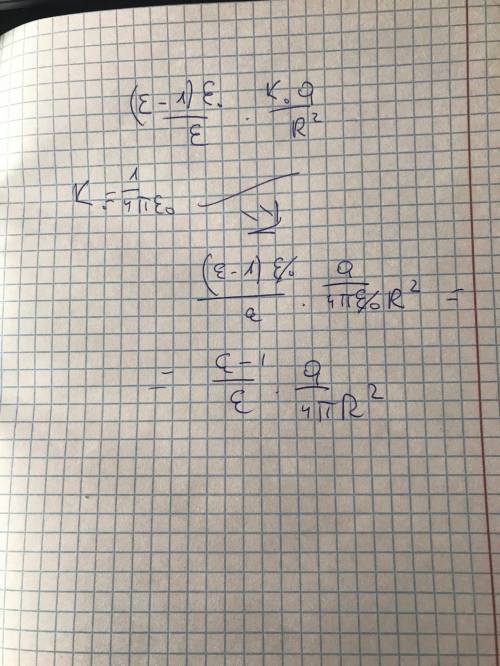 (ε-1)ε₀/ε · k₀q/R²
k₀ = 1/4πε₀
⇓
(ε-1)ε₀/ε · q/4πε₀R² =
= ε-1/ε · q/4πR²